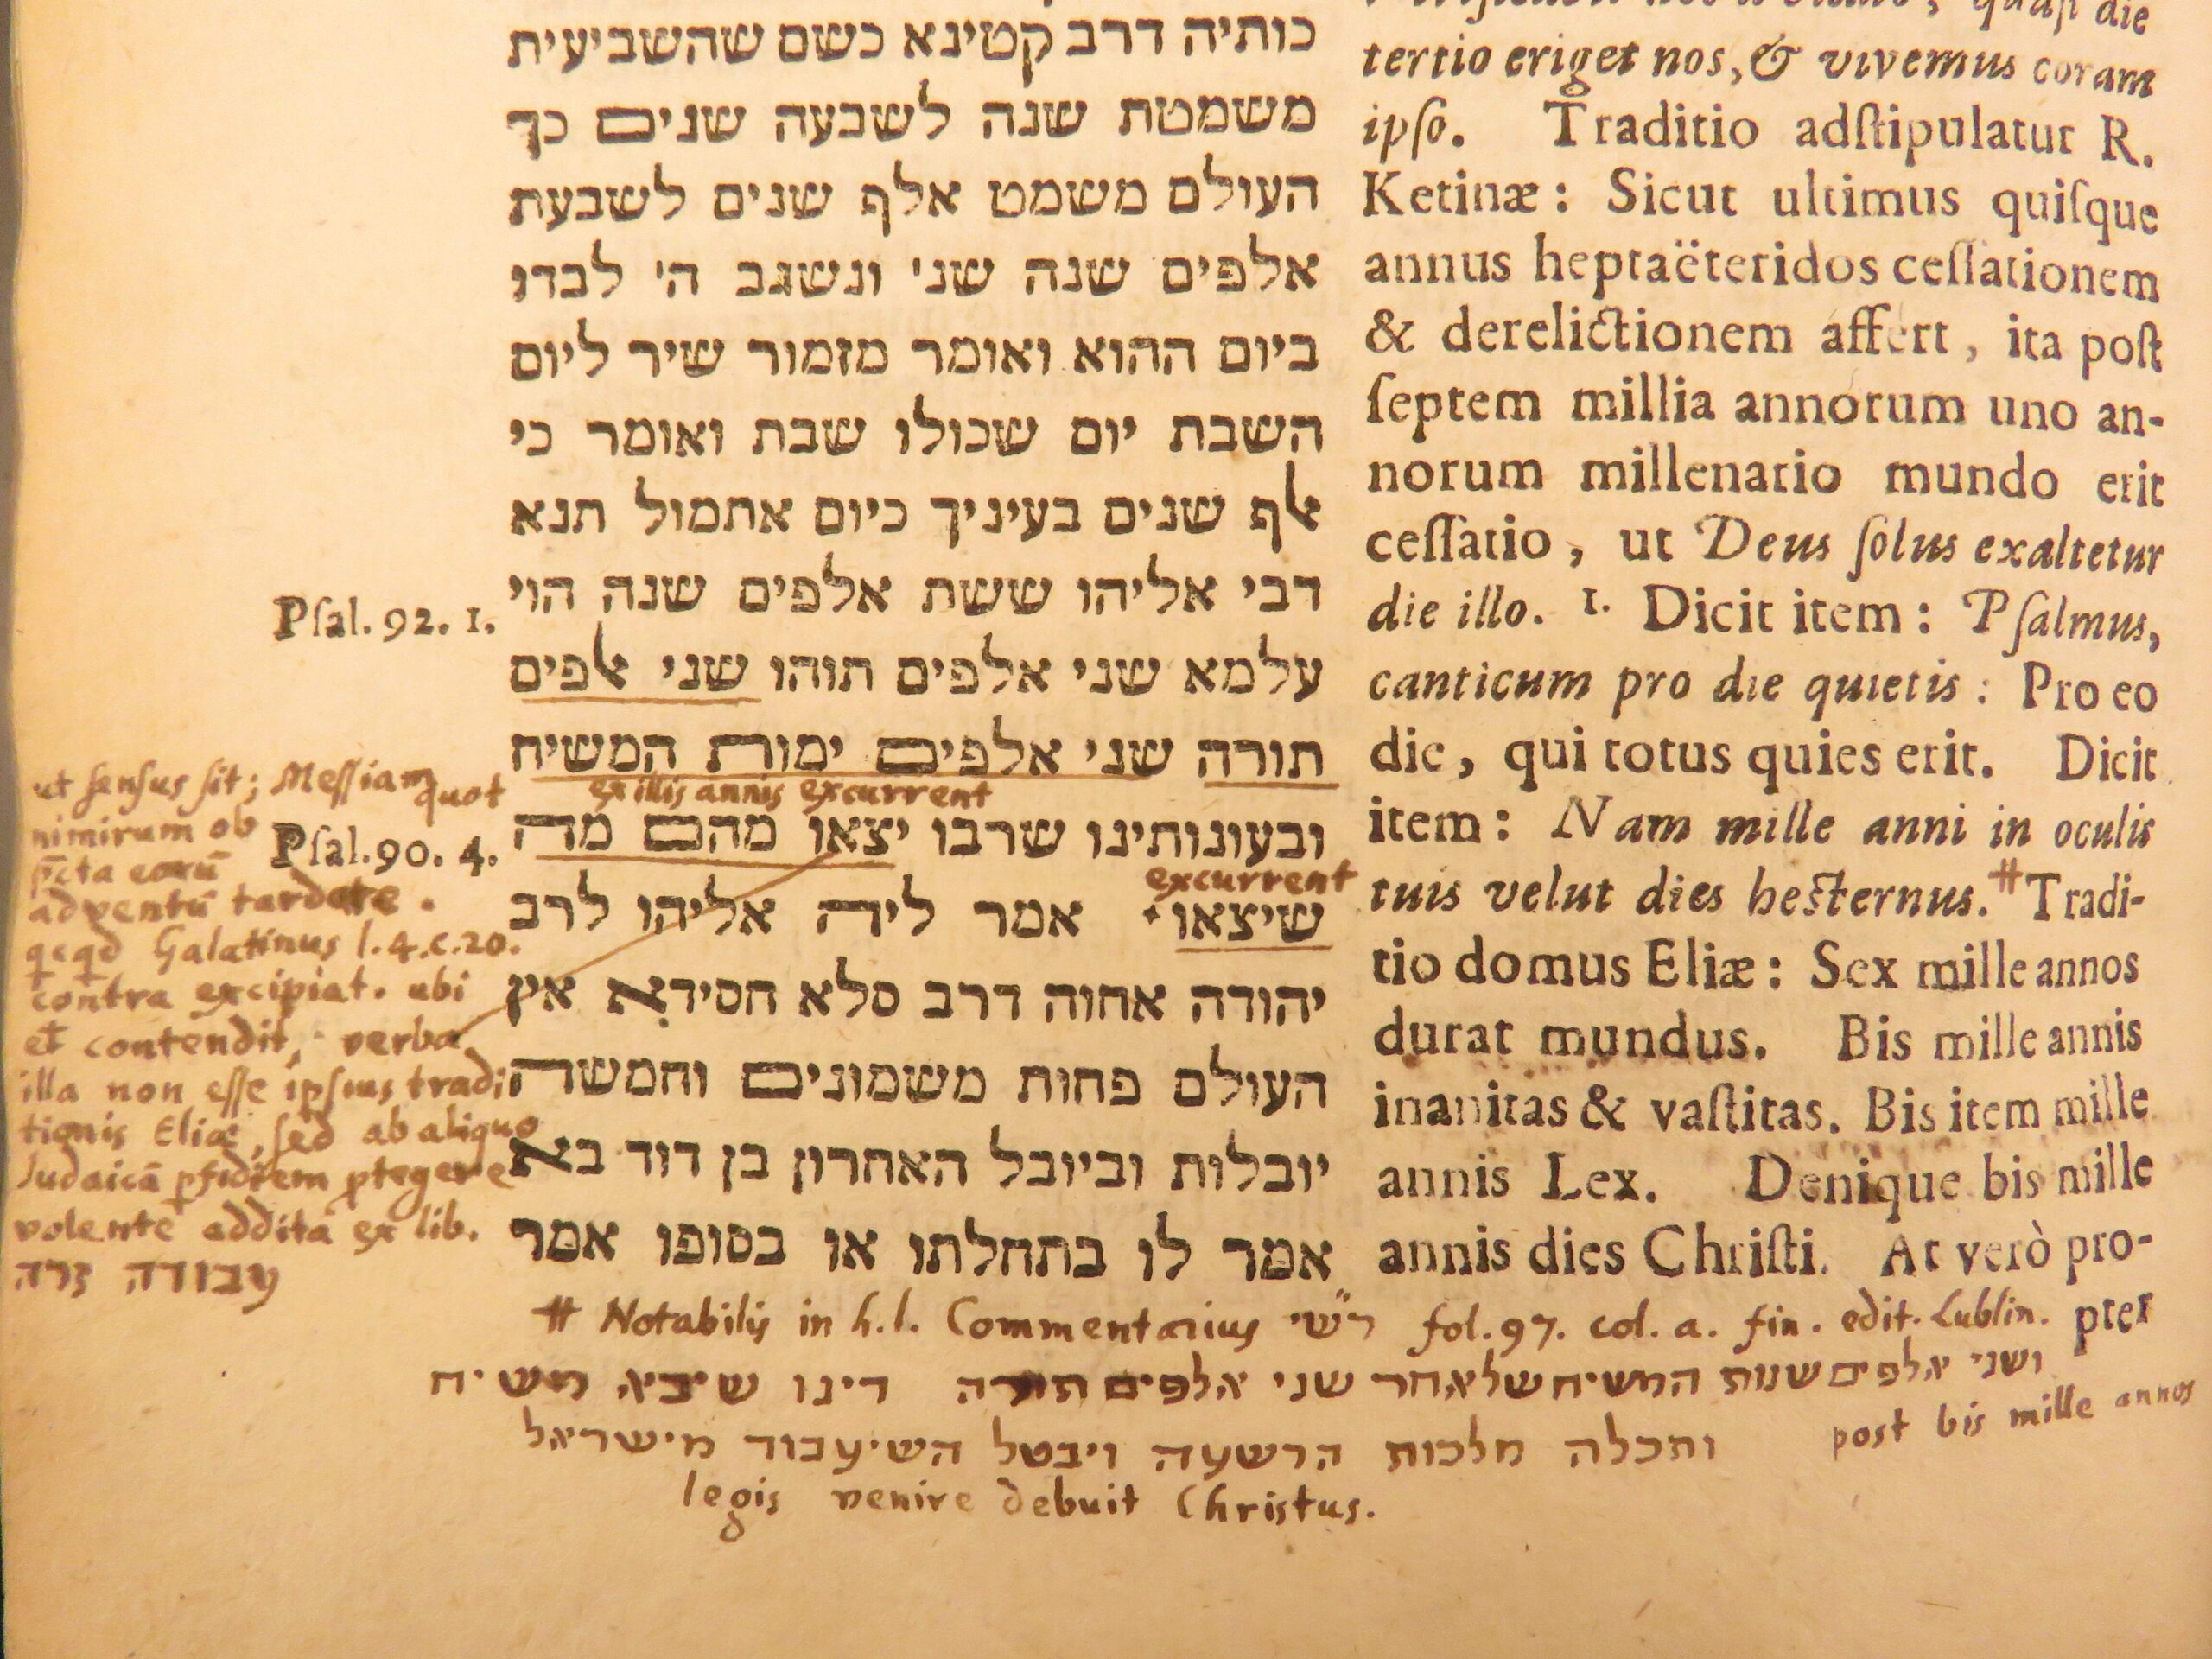 כותיה דרב קטינא כשם שהשביעית
משמטת שנה לשבעה שנים כך
העולם משמט אלף שנים לשבעת
אלפים שנה שני ונשגב ה' לבדו
ביום ההוא ואומר מזמור שיר ליום
השבת יום שכולו שבת ואומר כי
אלף שנים בעיניך כיום אתמול תנא
דבי אליהו ששת אלפים שנה הוי
עלמא שני אלפים תוהו שני אלפים
תורה שני אלפים ימות המשיח
ex illis annis excurrent
ובעונותינו שרבו יצאו מהם מה
excurrent
שיצאו· אמר ליה אליהו לרב
יהודה אחוה דרב סלא חסידא אין
העולם פחות משמונים וחמשה
יובלות וביובל האחרון בן דוד בא
אמר לו בתחלתו או בסופו אמר
Psal. 92. 1.
Psal. 90. 4.
ut sensus sit; Messiam quot
nimirum ob
pcta eorū
adventū tardate.
qcqd Galatinus l. 4. c. 20.
contra excipiat. ubi
et contendit, verba
illa non esse ipsius tradi
tionis Eliæ, sed ab aliquo
Judaicā pfidiem ptegere
volente addita ex lib.
עבודה זרה
die
tertio eriget nos, & vivemus coram
ipso. Traditio adstipulatur R.
Ketinæ: Sicut ultimus quisque
annus heptaëteridos cessationem
& derelictionem affert, ita post
septem millia annorum uno an-
norum millenario mundo erit
cessatio, ut Deus solus exaltetur
die illo. 1. Dicit item: Psalmus,
canticum pro die quietis: Pro eo
die, qui totus quies erit. Dicit
item: Nam mille anni in oculis
tuis velut dies hesternus. # Tradi-
tio domus Eliæ: Sex mille annos
durat mundus. Bis mille annis
inanitas & vastitas. Bis item mille
annis Lex. Denique bis mille
annis dies Christi. At verò pro-
pter
# Notabilis in h. l. Commentarius רש"י fol. 97. col. a. fin. edit. Lublin.
ושני אלפים שנות המשיח שלאחר שני אלפים תורה דינו שיבא משיח
ותכלה מלכות הרשעה ויבטל השיעבוד מישראל
post bis mille annos
legis venire debuit Christus.